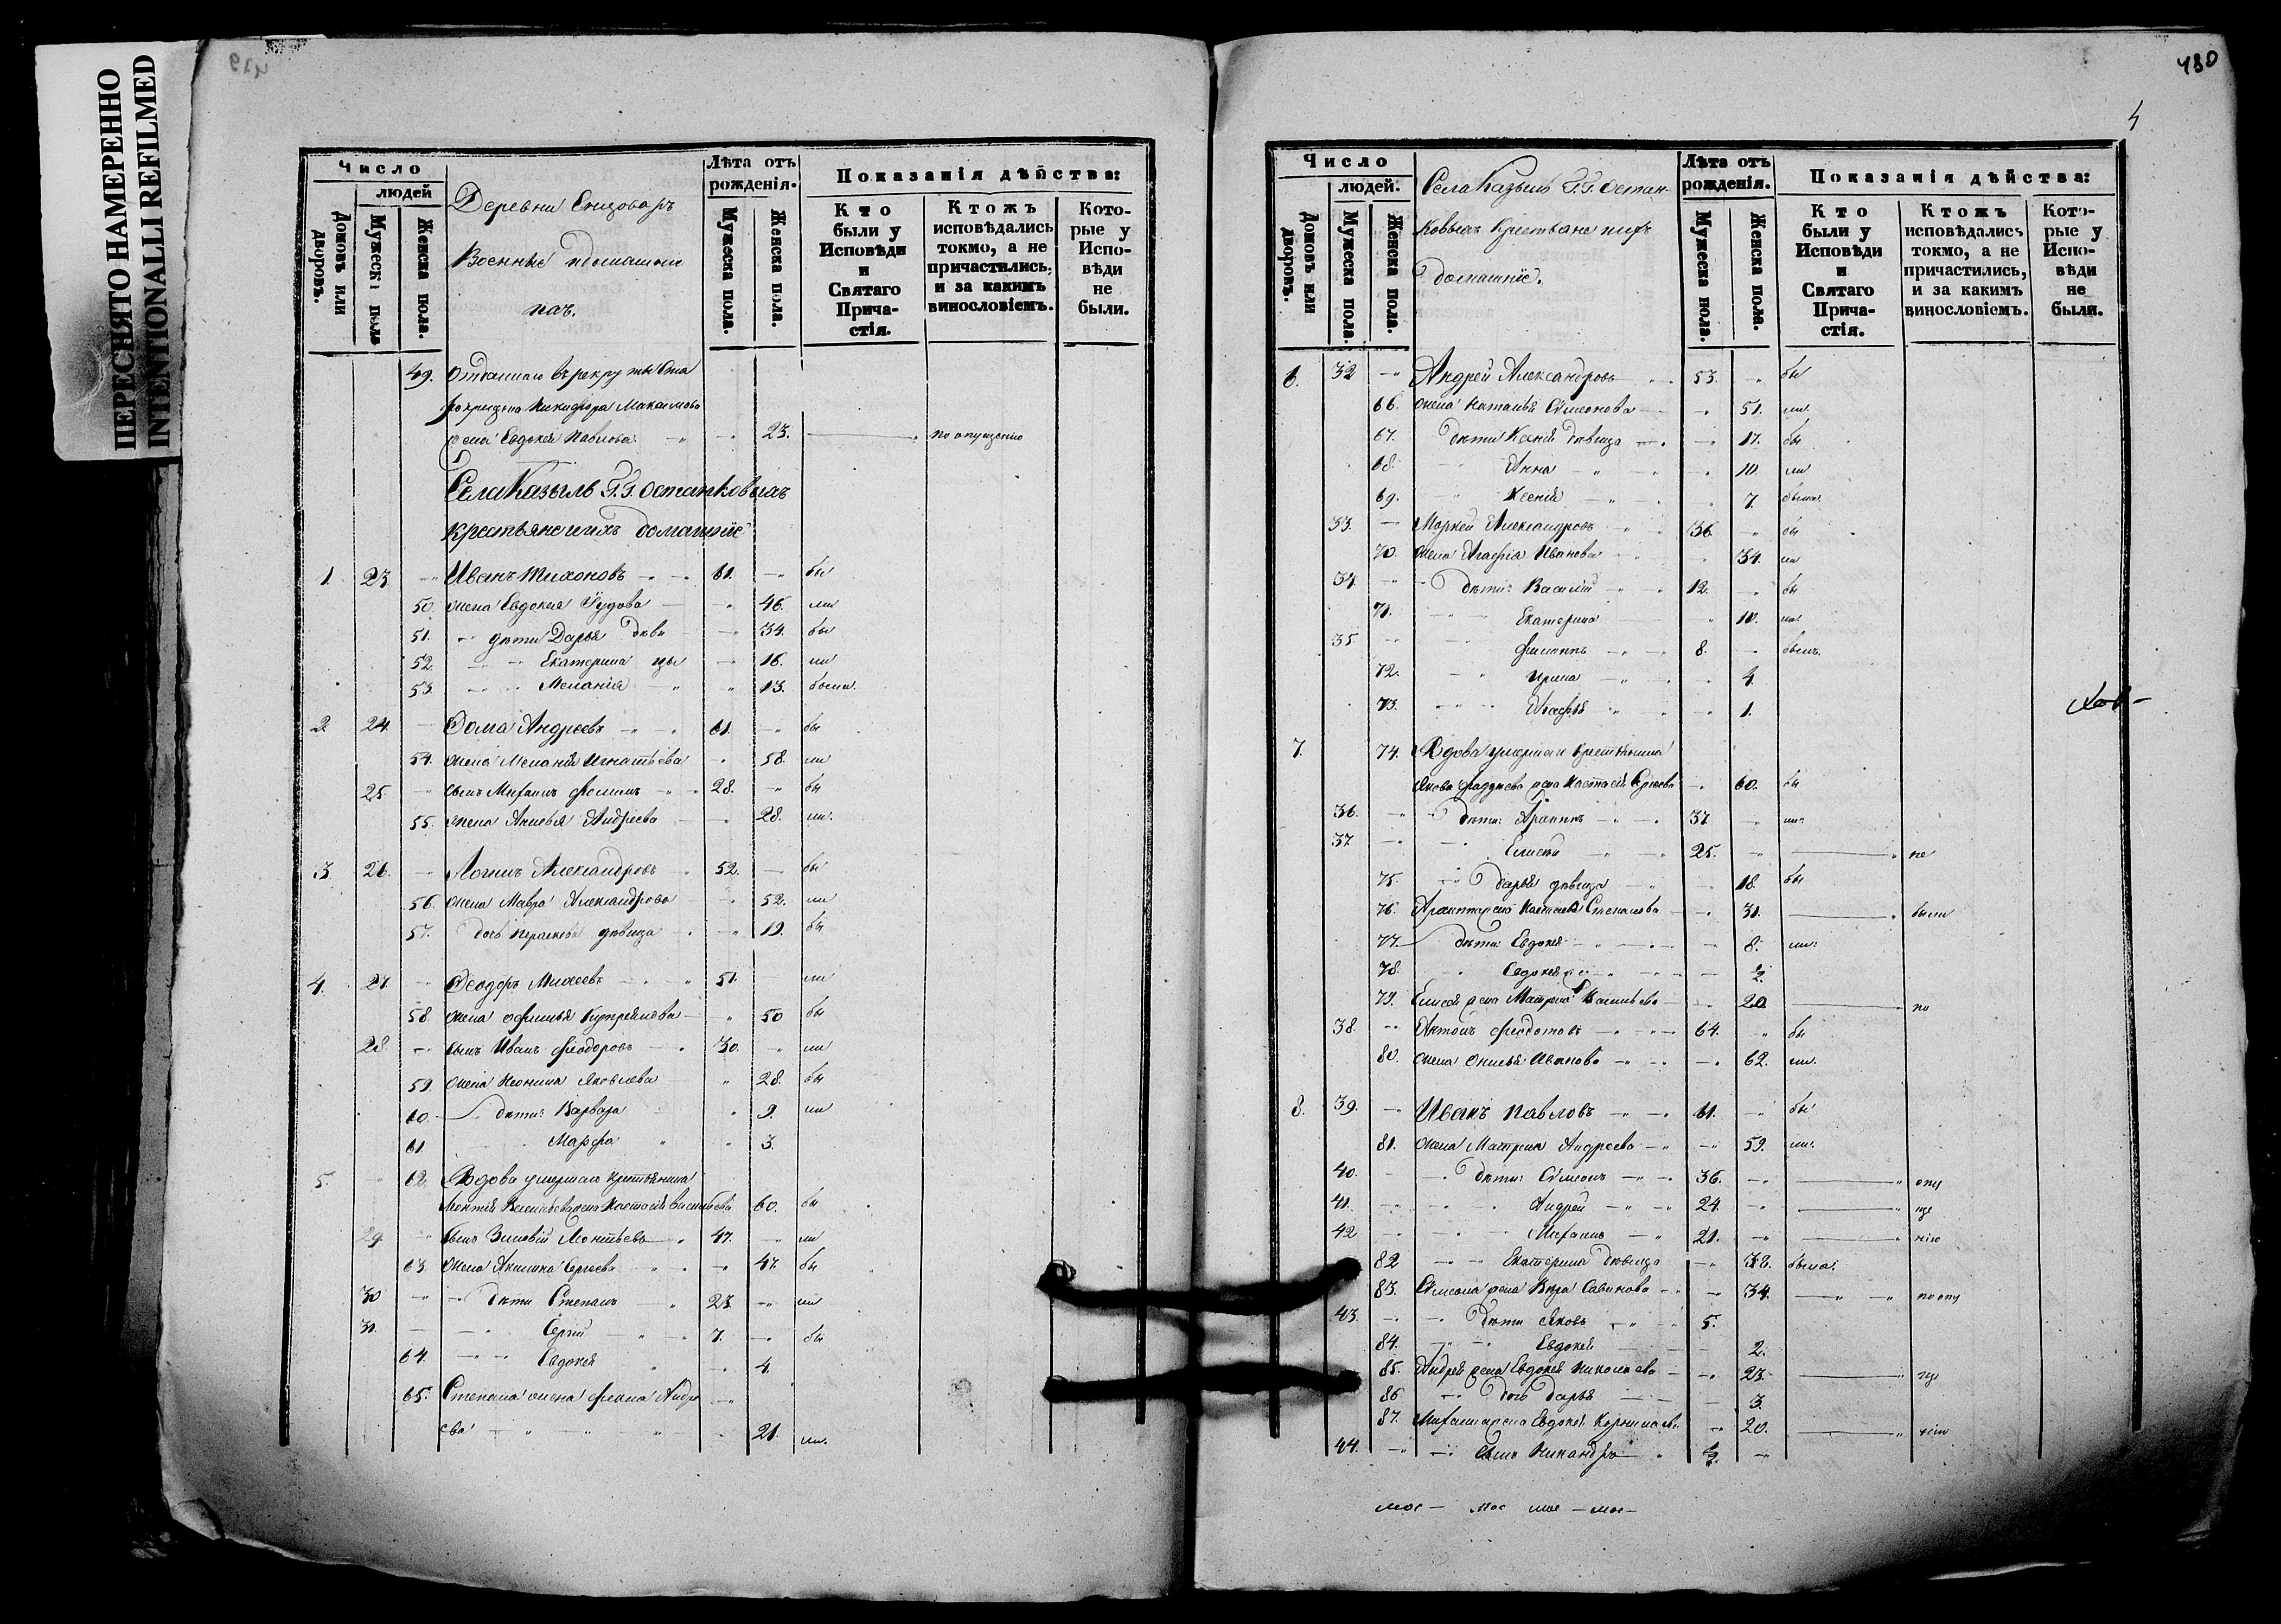 ПЕРЕСНЯТО НАМЕРЕННО
INTENTIONALLI REFILMED
Число
людей
Домовъ или дворовъ.
Мужеска пола
Женска пола.
Деревни Енизоваръ
Военные
ихъ.
Лѣта отъ рожденія.
Мужеска пола.
Женска пола.
Показанія дѣйства:
Кто были у Исповѣди и Святаго Прича-стія.
Ктожъ исповѣдались токмо, а не причастились, и за какимъ винословіемъ.
Кото-рые у Испо-вѣди не были.
49. Отданнаго въ рекруты
Никифора Максимова
жена Евдокея Павлова 23. по опущенію
Села Казыль Г.Г. Останковыхъ
крестьяне ихъ домашніе
1. 23 Иванъ Тихоновъ 61. бы
50. жена Евдокея 46. ли
51. дѣти Дарья дѣви 34. бы
52. Екатерина цы 16. ли
53. Меланія 13. была.
2 24. Фома Андреевъ 61. бы
54. жена Меланія Игнатьева 58. ли
25. сынъ Михаилъ Фоминъ 28. бы
55. жена Анисья Андреева 28. ли.
3 26. Логинъ Александровъ 52. бы
56. жена Мавра Александрова 52. ли
57. дочь Параскева дѣвица 19. бы
4. 27 Феодоръ Михеевъ 51. ли
58. жена Офимья Купреянова 50 бы
28. сынъ Иванъ Феодоровъ 30. ли
59. жена Неонила Яковлева 28. бы
60. дѣти: Варвара 9. ли
61 Марфа 3.
5. 62. Вдова умершаго крестьянина
Леонтія жена Настасія Васильева 60. бы
29 сынъ Зиновій Леонтьевъ 47. ли
63. жена Акилина Сергеева 47 бы
30 дѣти Степанъ 23 ли
31. Сергій 7. бы
64. Евдокея 4.
65. Степана жена Фекла Андре
ева 21. ли.
430
4
Число
людей.
Домовъ или дворовъ.
Мужеска пола.
Женска пола.
Села Казыль Г.Г. Остан-
ковыхъ крестьяне ихъ
домашніе.
Лѣта отъ рожденія.
Мужеска пола.
Женска пола.
Показанія дѣйства:
Кто были у Исповѣди и Святаго Прича-стія.
Ктожъ исповѣдались токмо, а не причастились, и за какимъ винословіемъ.
Кото-рые у Испо-вѣди не были.
6. 32 Андрей Александровъ 53. бы
66. жена Наталья Симеонова 51. ли.
67. дѣти Ксенія дѣвица 17. бы
68. Анна 10. ли
69. Ксенія 7. была.
33. Маркей Александровъ 36 бы
70. жена Агафія Иванова 34. ли
34 дѣти: Василій 12. бы
71. Екатерина 10. ли.
35 Филиппъ 8. былъ.
72. Ирина 4.
73. Агафья 1.
7. 74. Вдова умершаго крестьянина
Якова Фаддеева жена Настасія Сергеева 60. бы
36. дѣти: Архиппъ 37. ли.
37 Елисей 25. не
75. Дарья дѣвица 18. бы
76. Архиппа жена Настасья Степанова 31. были
77. дѣти: Евдокея 8. ли.
78. Евдокея ½
79. Елисея жена Матрена Васильева 20 по
38. Антонъ Феодотовъ 64. бы
80. жена Анисья Иванова 62. ли.
8. 39. Иванъ Павловъ 61. бы
81. жена Матрена Андреева 59. ли.
40. дѣти: Симеонъ 36. опу
41. Андрей 24. ще
42 Михаилъ 21. нію
82 Екатерина дѣвица 38. была.
83. Симеона жена Вера Савинова 34. по опу
43. дѣти Яковъ 5.
84. Евдокея 2.
85. Андрея жена Евдокея Николаева 23. ще
86 дочь Дарья 3.
87. Михаила жена Евдокея Корнилаева 20. нію
44. сынъ Никандръ ½